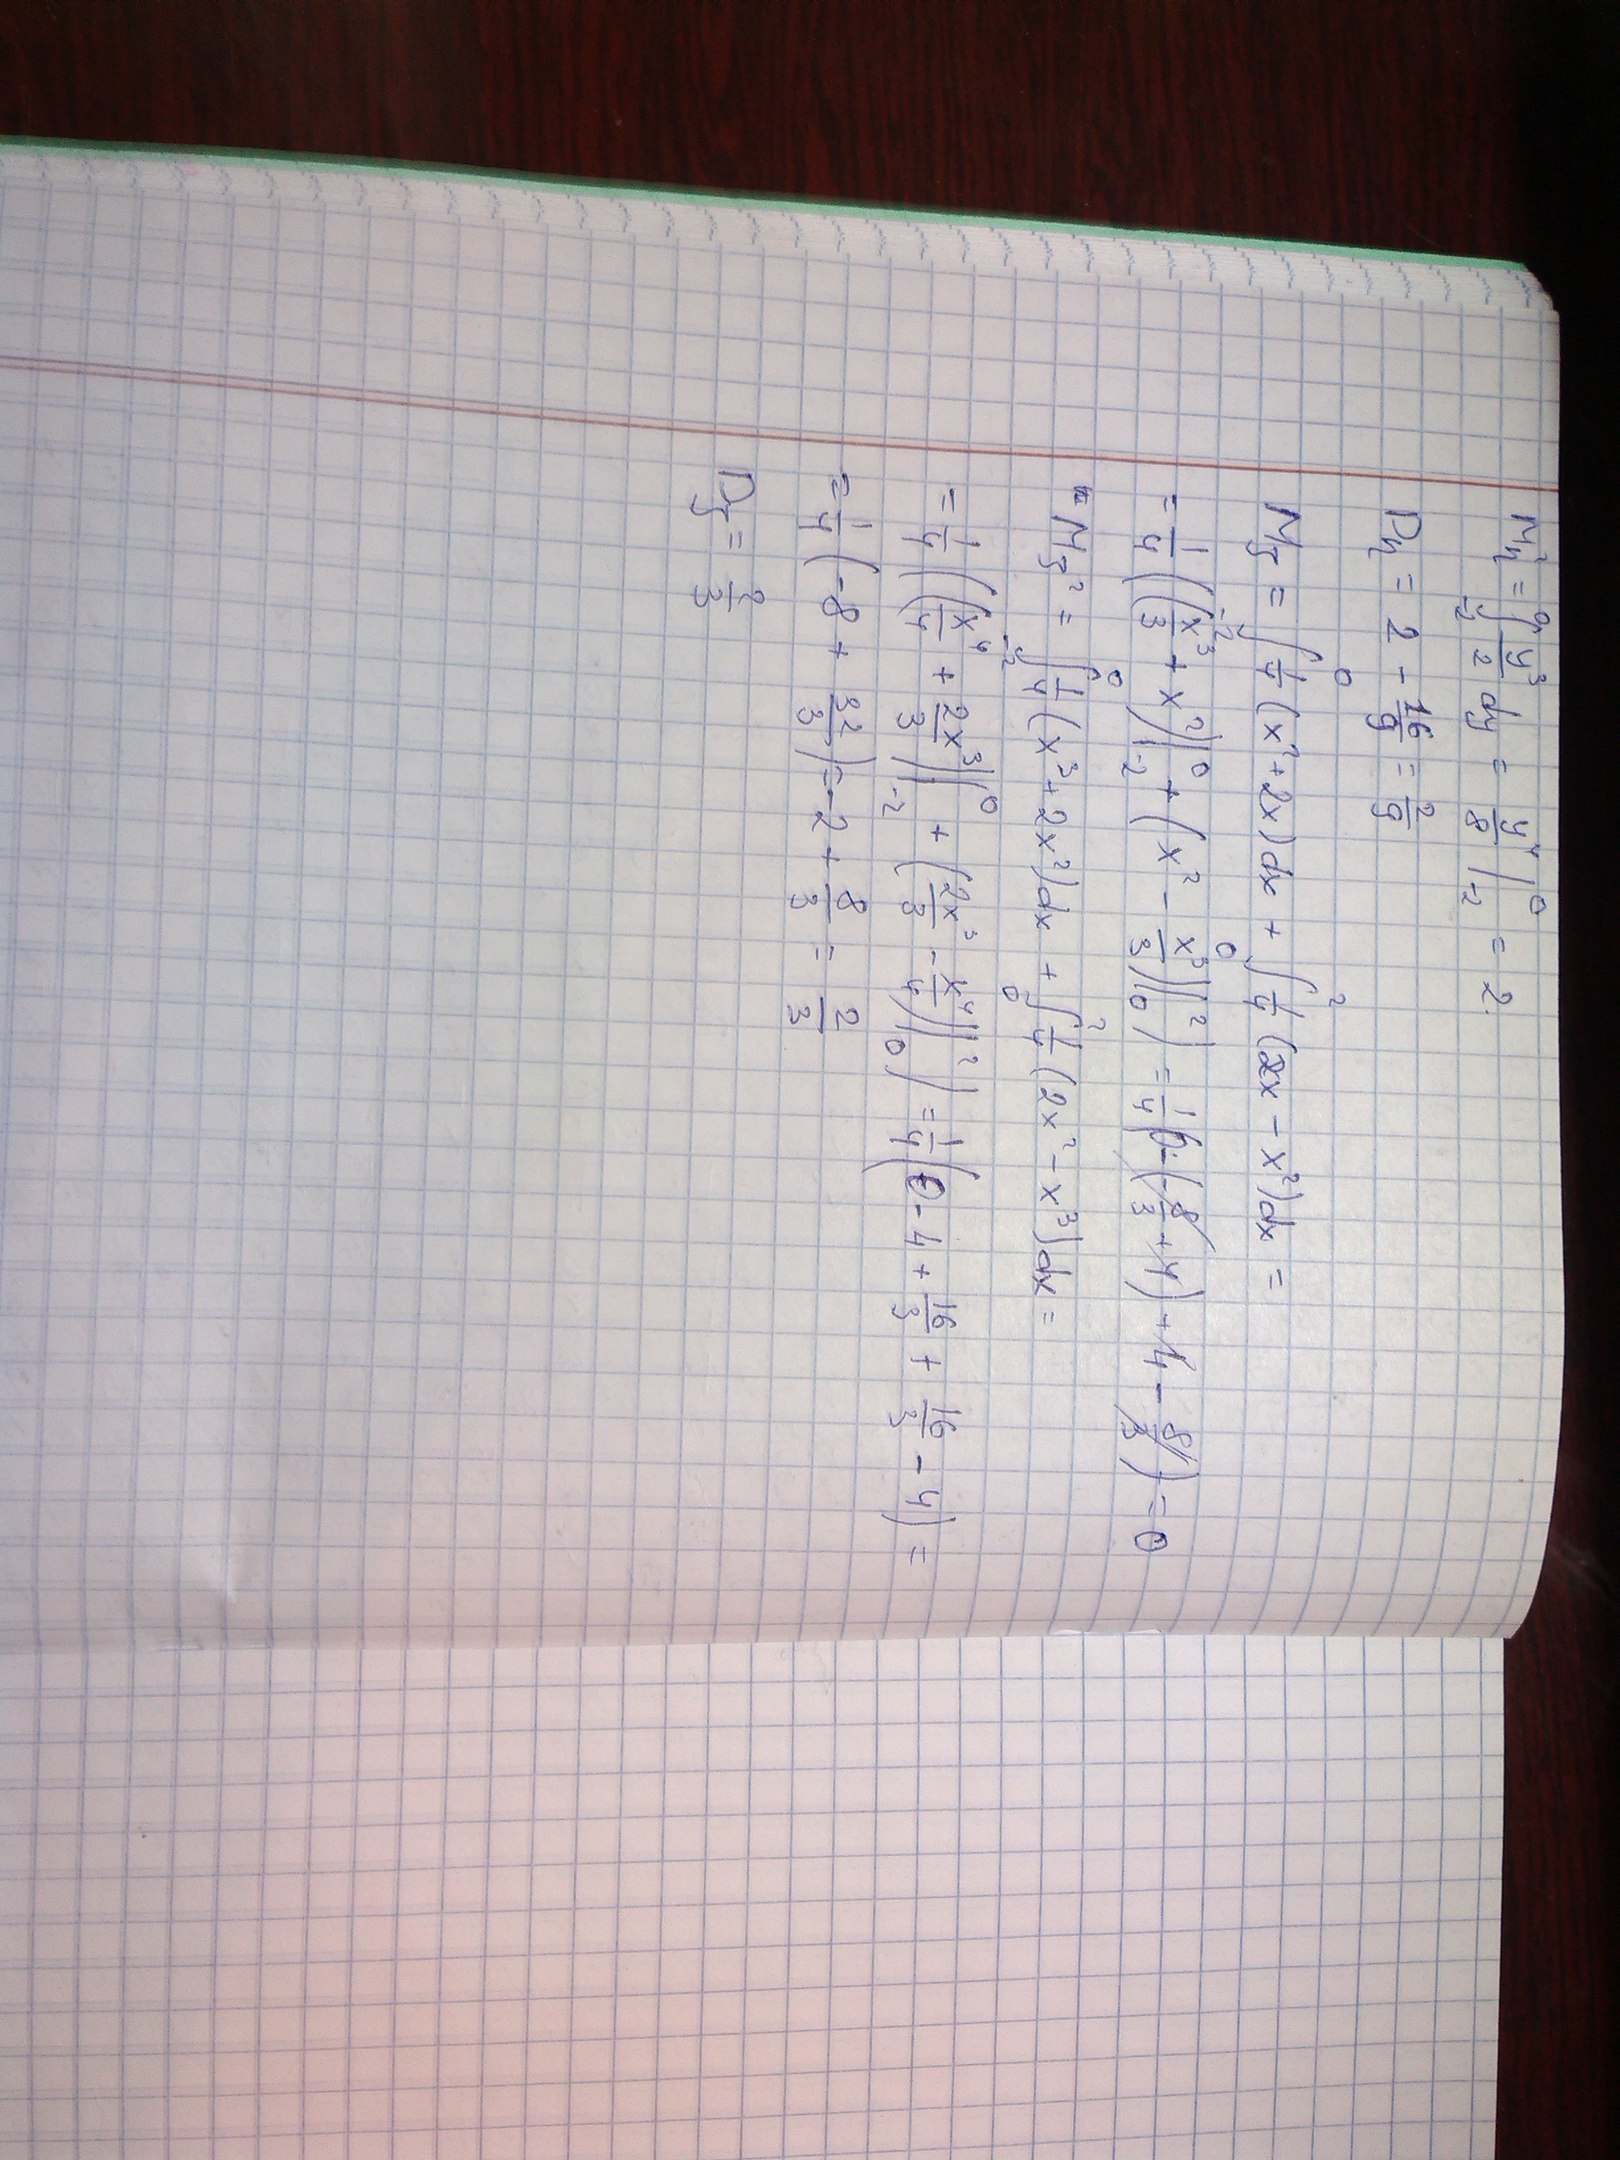 Mη² = ∫₋₂⁰ y³/2 dy = y⁴/8 |₋₂⁰ = 2.
Dη = 2 - 16/9 = 2/9
Mξ = ∫₋₂⁰ 1/4 (x²+2x)dx + ∫₀² 1/4 (2x - x²)dx =
= 1/4 ((x³/3 + x²)|₋₂⁰ + (x² - x³/3)|₀²) = 1/4(0-(-8/3+4) + 4 - 8/3) = 0
Mξ² = ∫₋₂⁰ 1/4 (x³+2x²)dx + ∫₀² 1/4 (2x² - x³)dx =
= 1/4 ((x⁴/4 + 2x³/3)|₋₂⁰ + (2x³/3 - x⁴/4)|₀²) = 1/4(0 - 4 + 16/3 + 16/3 - 4) =
= 1/4 (-8 + 32/3) = -2 + 8/3 = 2/3
Dξ = 2/3